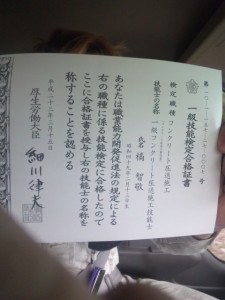 一級技能検定合格証書
検定職種 コンクリート圧送施工
技能士の名称 一級コンクリート圧送施工技能士
氏名 橘 智敬
あなたは職業能力開発促進法の規定による
右の職種に係る技能検定に合格したので
ここに合格証書を授与し右の技能士の名称を
称することを認める
平成二十三年三月十五日
厚生労働大臣
細川律夫